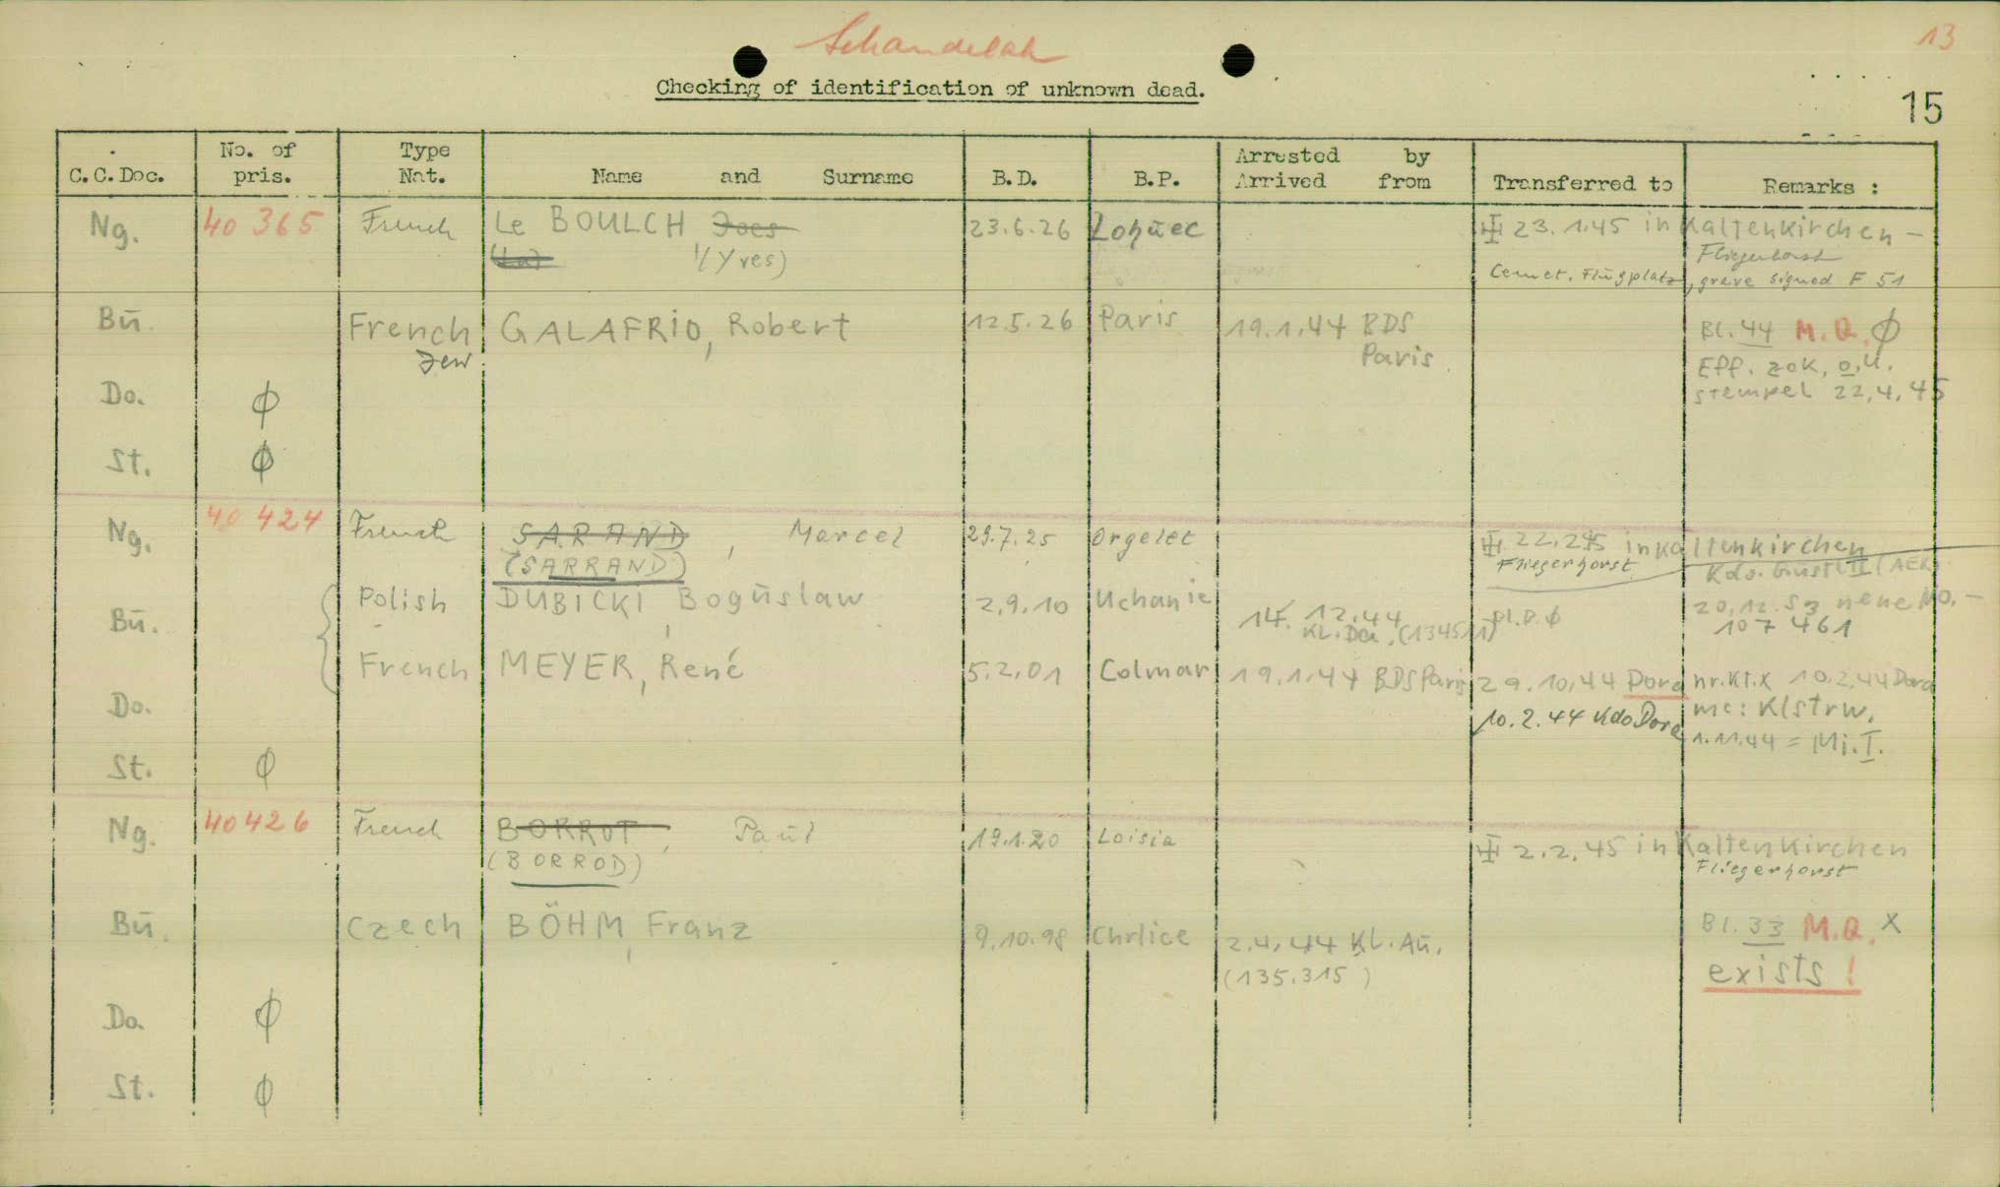 Schandelah
13
Checking of identification of unknown dead.
15
C.C.Doc. No. of pris. Type Nat. Name and Surname B.D. B.P. Arrested by Arrived from Transferred to Remarks :
Ng. 40 365 French Le BOULCH Joes 23.6.26 Lohuec 23.1.45 in Kaltenkirchen -
(Yves) Fliegerhorst
Cemet. Flugplatz, grave signed F 51
Bū. French GALAFRIO, Robert 12.5.26 Paris 19.1.44 BDS Bl. 44 M.Q. Ø
Jew Paris Eff. zok, o,u.
Do. Ø stempel 22,4,45
St. Ø
Ng. 40 424 French SARAND, Marcel 29.7.25 Orgelet 22.2.45 in Kaltenkirchen
(SARRAND) Fliegerhorst
Bū. Polish DUBICKI, Bogūslaw 2,9.10 Uchanie 14. 12.44 pl.D.Ø 20,12.53 neue No. -
107 461
French MEYER, René 5.2,01 Colmar 19.1.44 BDS Paris 29.10,44 Dora nr.Kt.X 10.2,44 Dora
Do. 10.2.44 Kdo Dora mc: Klstrw,
St. Ø 1.11.44 = Mi.I.
Ng. 40426 French BORROT, Paul 19.1.20 Loisia 2.2.45 in Kaltenkirchen
(BORROD) Fliegerhorst
Bū. Czech BÖHM, Franz 9.10.98 Chrlice 2.4.44 KL.Aū. Bl. 33 M.Q. X
(135.315) exists !
Do. Ø
St. Ø